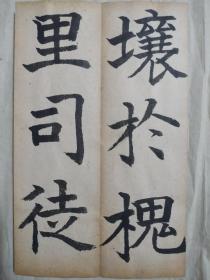 壤於槐
里司徒